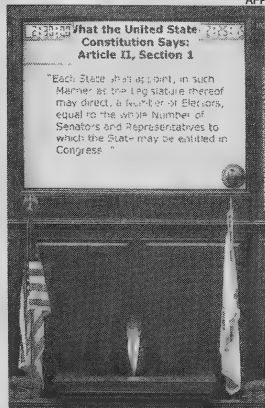 APP
2:30:00 What the United State 2:25:
Constitution Says:
Article II, Section 1
"Each State shall appoint, in such
Manner as the Legislature thereof
may direct, a Number of Electors,
equal to the whole Number of
Senators and Representatives to
which the State may be entitled in
Congress."